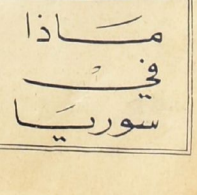 ماذا
في
سوريا